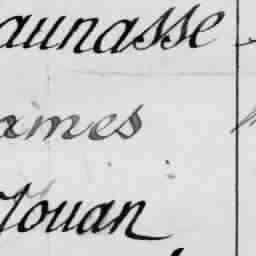 aunasse
ames
Jouan